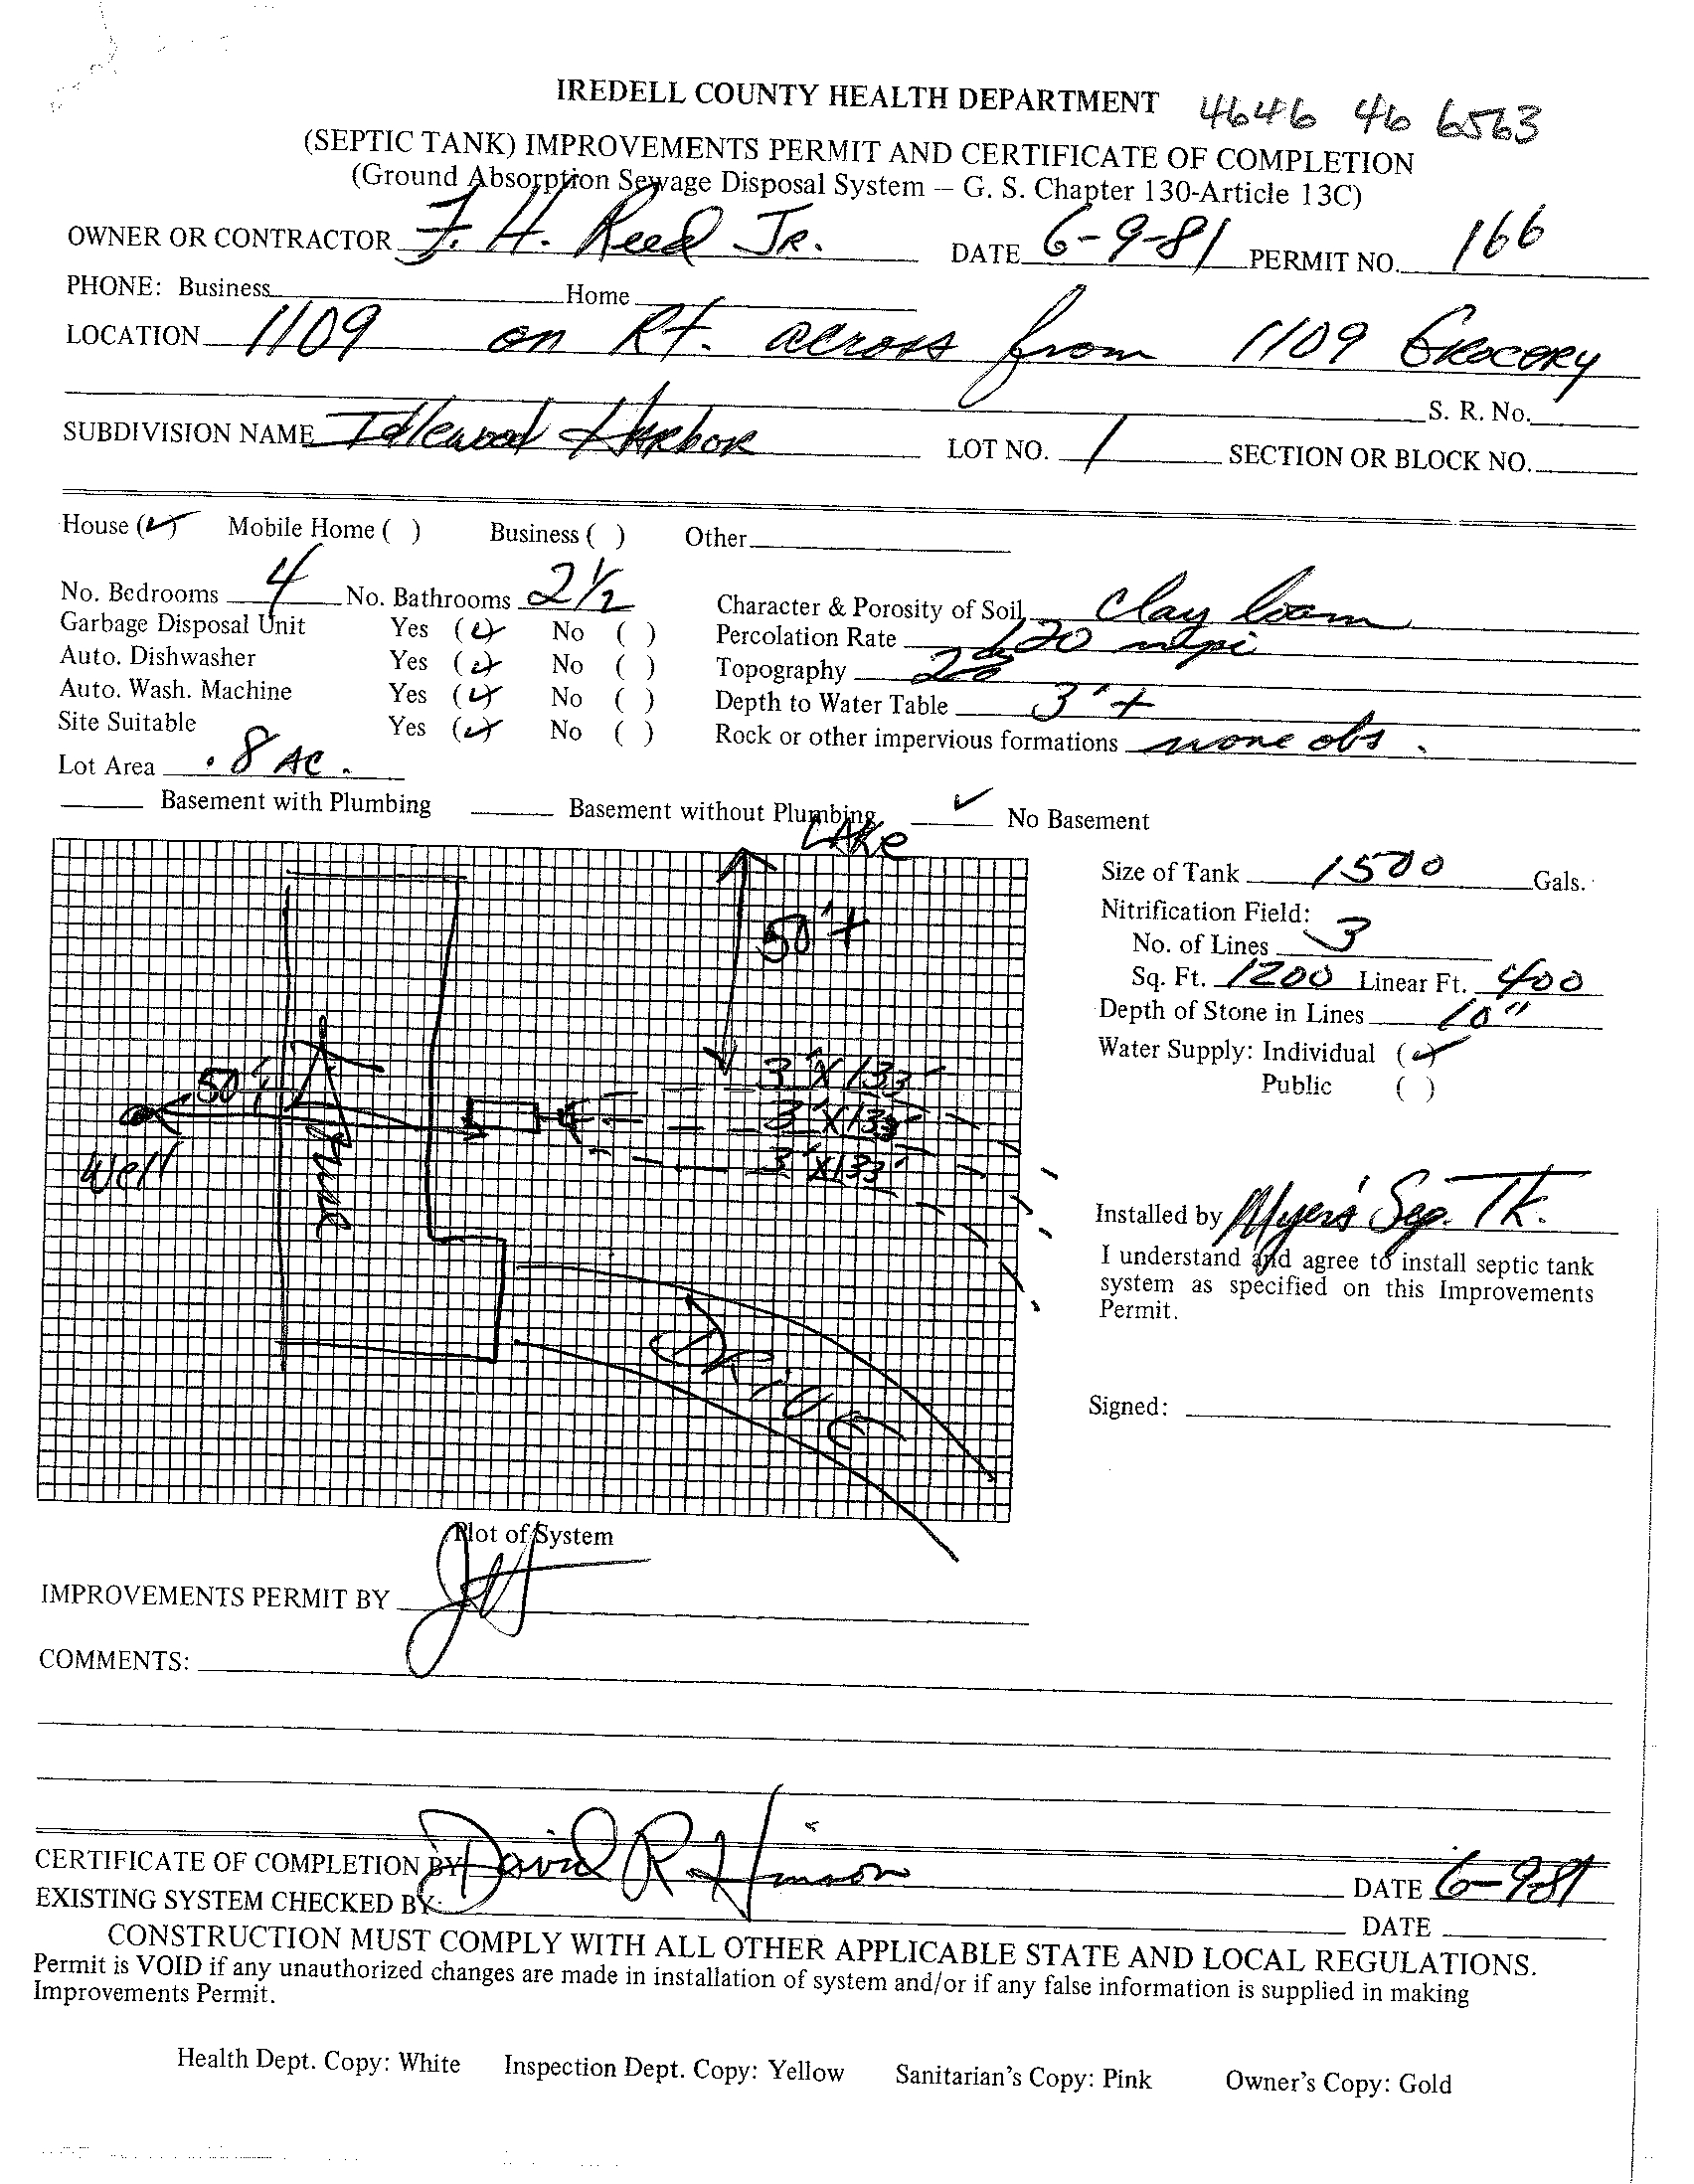 IREDELL COUNTY HEALTH DEPARTMENT 4646 46 6563
(SEPTIC TANK) IMPROVEMENTS PERMIT AND CERTIFICATE OF COMPLETION
(Ground Absorption Sewage Disposal System — G. S. Chapter 130-Article 13C)
OWNER OR CONTRACTOR F. H. Reed Jr. DATE 6-9-81 PERMIT NO. 166
PHONE: Business Home
LOCATION 1109 on Rt. across from 1109 Grocery
S. R. No.
SUBDIVISION NAME Idlewood Harbor LOT NO. 1 SECTION OR BLOCK NO.
House (✓) Mobile Home ( ) Business ( ) Other
No. Bedrooms 4 No. Bathrooms 2 1/2 Character & Porosity of Soil Clay loam
Garbage Disposal Unit Yes (✓) No ( ) Percolation Rate 120 mpi
Auto. Dishwasher Yes (✓) No ( ) Topography
Auto. Wash. Machine Yes (✓) No ( ) Depth to Water Table 3'+
Site Suitable Yes (✓) No ( ) Rock or other impervious formations none obs.
Lot Area .8 AC.
Basement with Plumbing Basement without Plumbing ✓ No Basement
LAKE
50'+
3'X133'
3'X133'
3'X133'
50'
Well
House
Drive
Size of Tank 1500 Gals.
Nitrification Field:
No. of Lines 3
Sq. Ft. 1200 Linear Ft. 400
Depth of Stone in Lines 10"
Water Supply: Individual (✓)
Public ( )
Installed by Myers Sep. Tk.
I understand and agree to install septic tank
system as specified on this Improvements
Permit.
Signed:
Plot of System
IMPROVEMENTS PERMIT BY
COMMENTS:
CERTIFICATE OF COMPLETION BY David R Hinson DATE 6-9-81
EXISTING SYSTEM CHECKED BY: DATE
CONSTRUCTION MUST COMPLY WITH ALL OTHER APPLICABLE STATE AND LOCAL REGULATIONS.
Permit is VOID if any unauthorized changes are made in installation of system and/or if any false information is supplied in making
Improvements Permit.
Health Dept. Copy: White Inspection Dept. Copy: Yellow Sanitarian's Copy: Pink Owner's Copy: Gold